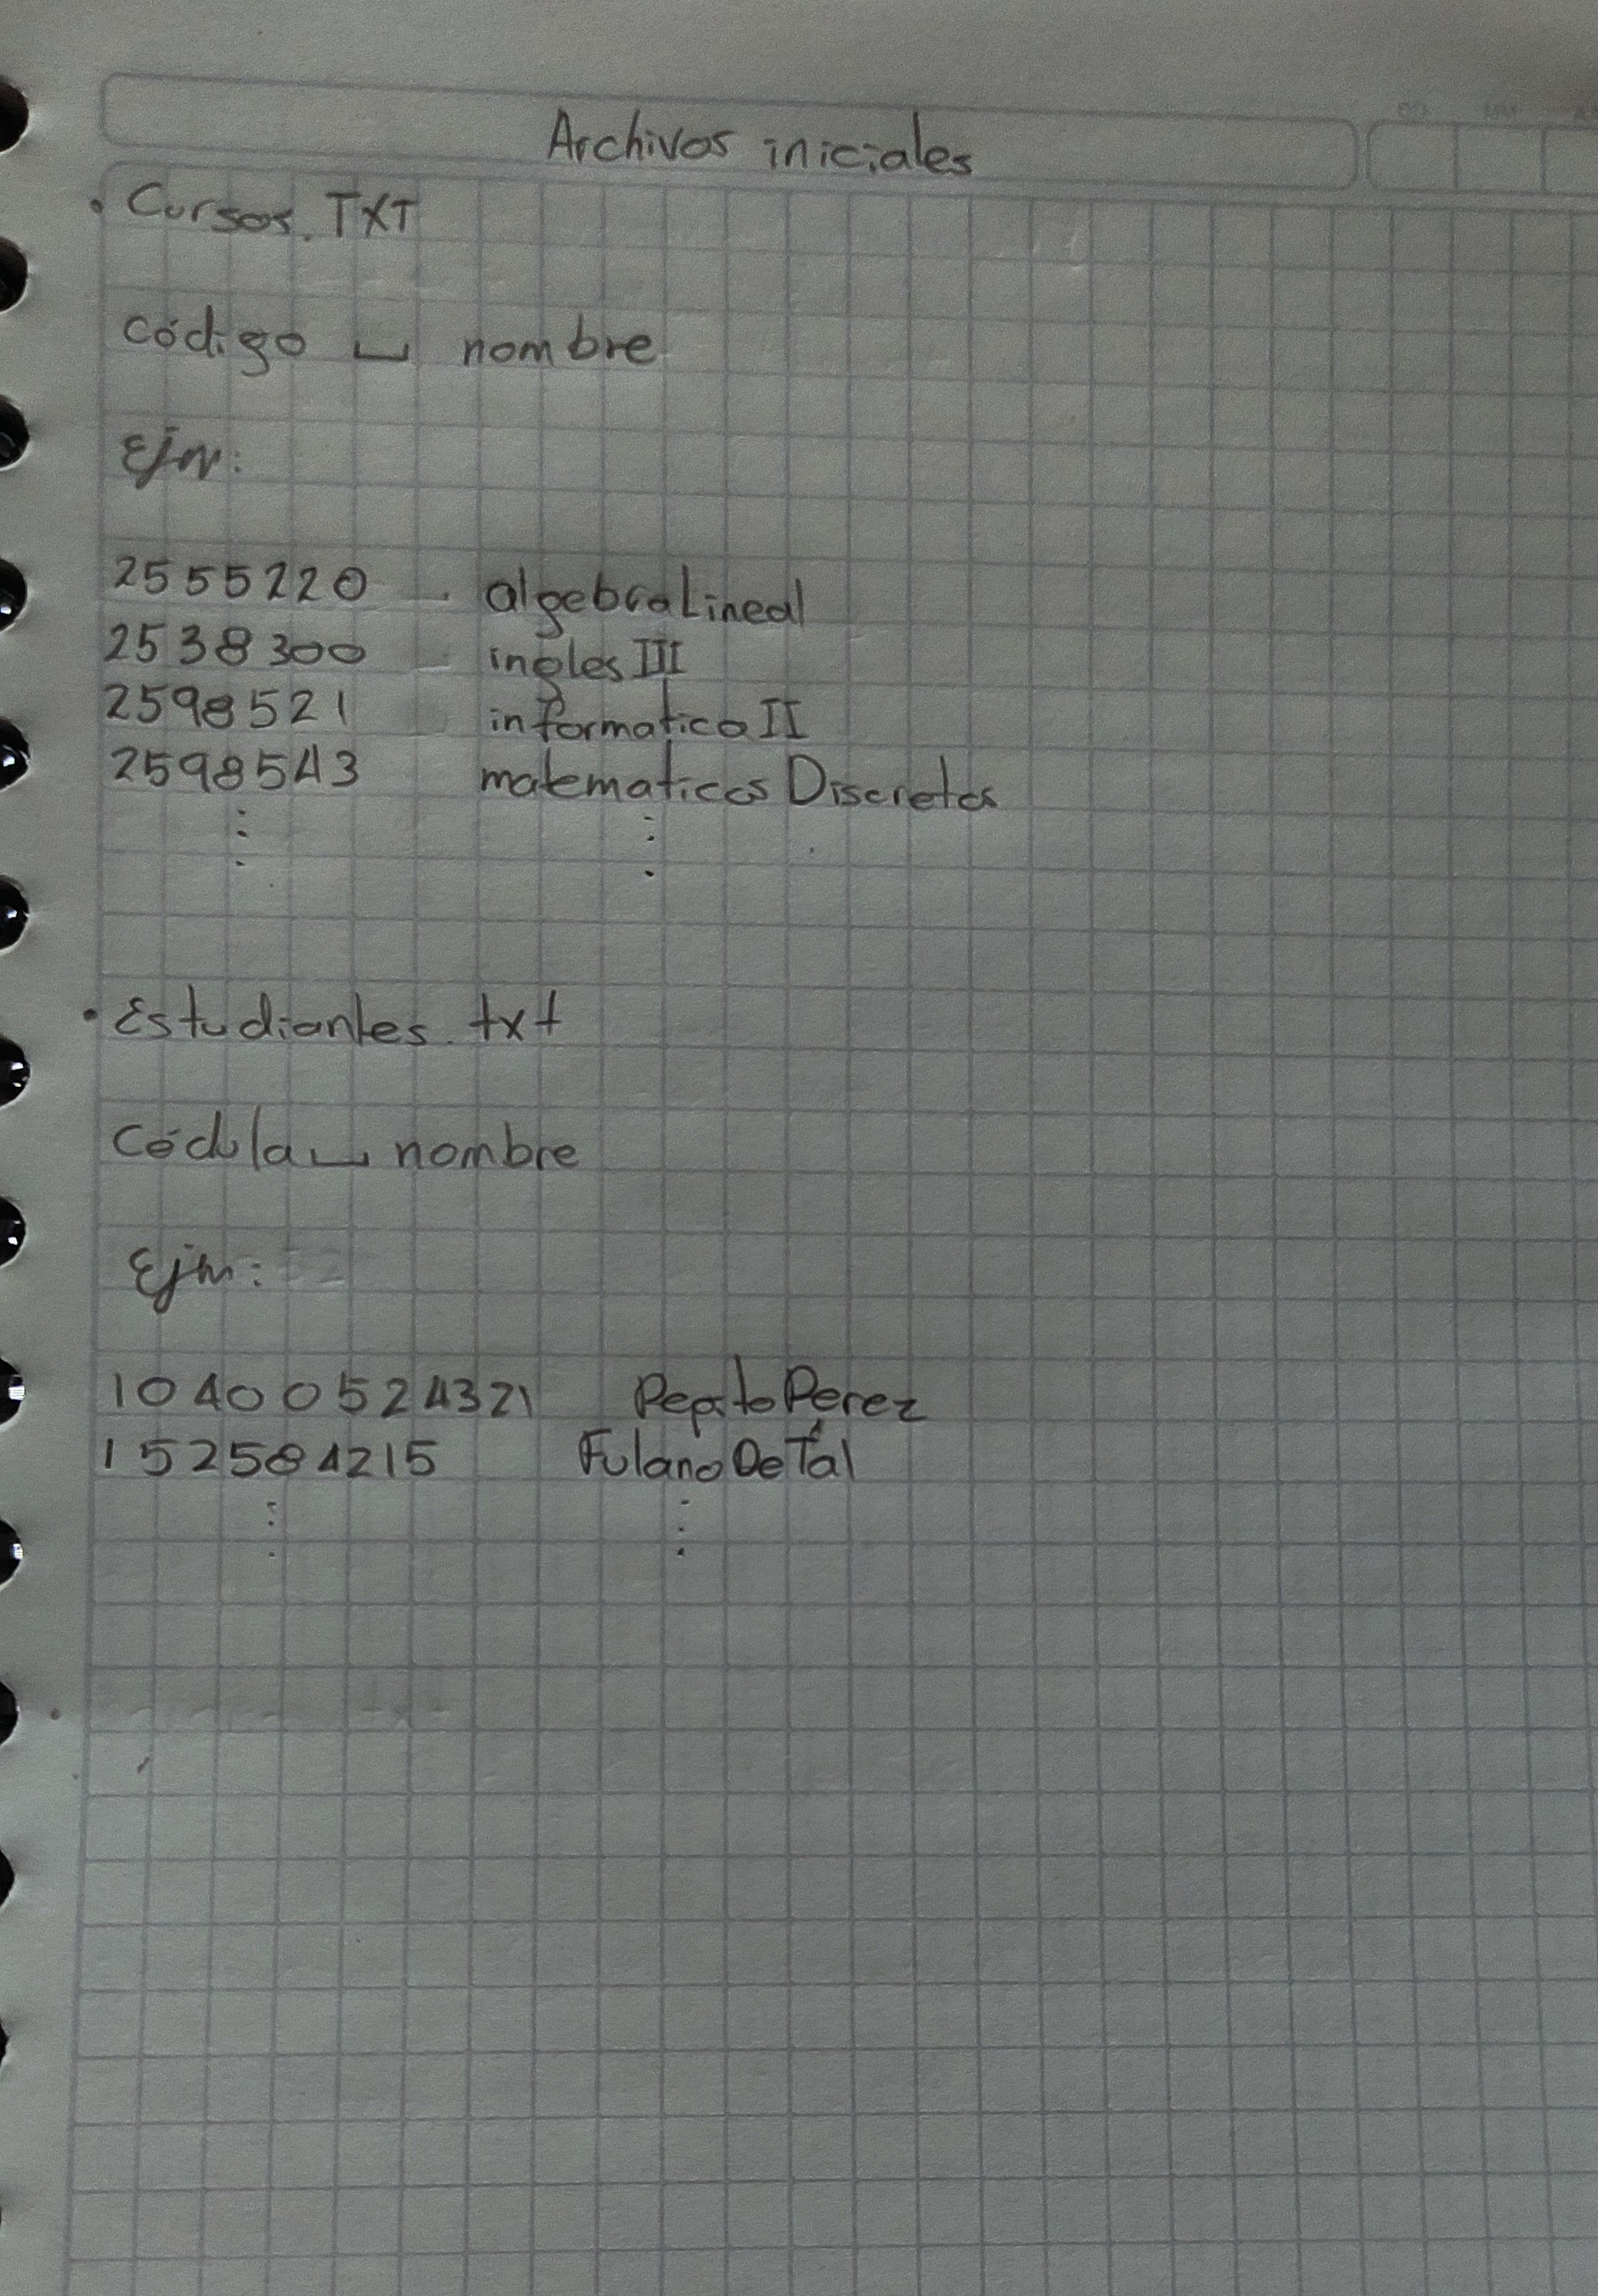 Archivos iniciales
• Cursos. TXT
código ⎵ nombre
Ejm:
2555220 algebraLineal
2538300 ingles III
2598521 informatica II
2598543 matematicas Discretas
⋮ ⋮
• Estudiantes. txt
Cédula ⎵ nombre
Ejm:
10400524321 PepitoPerez
152584215 FulanoDeTal
⋮ ⋮